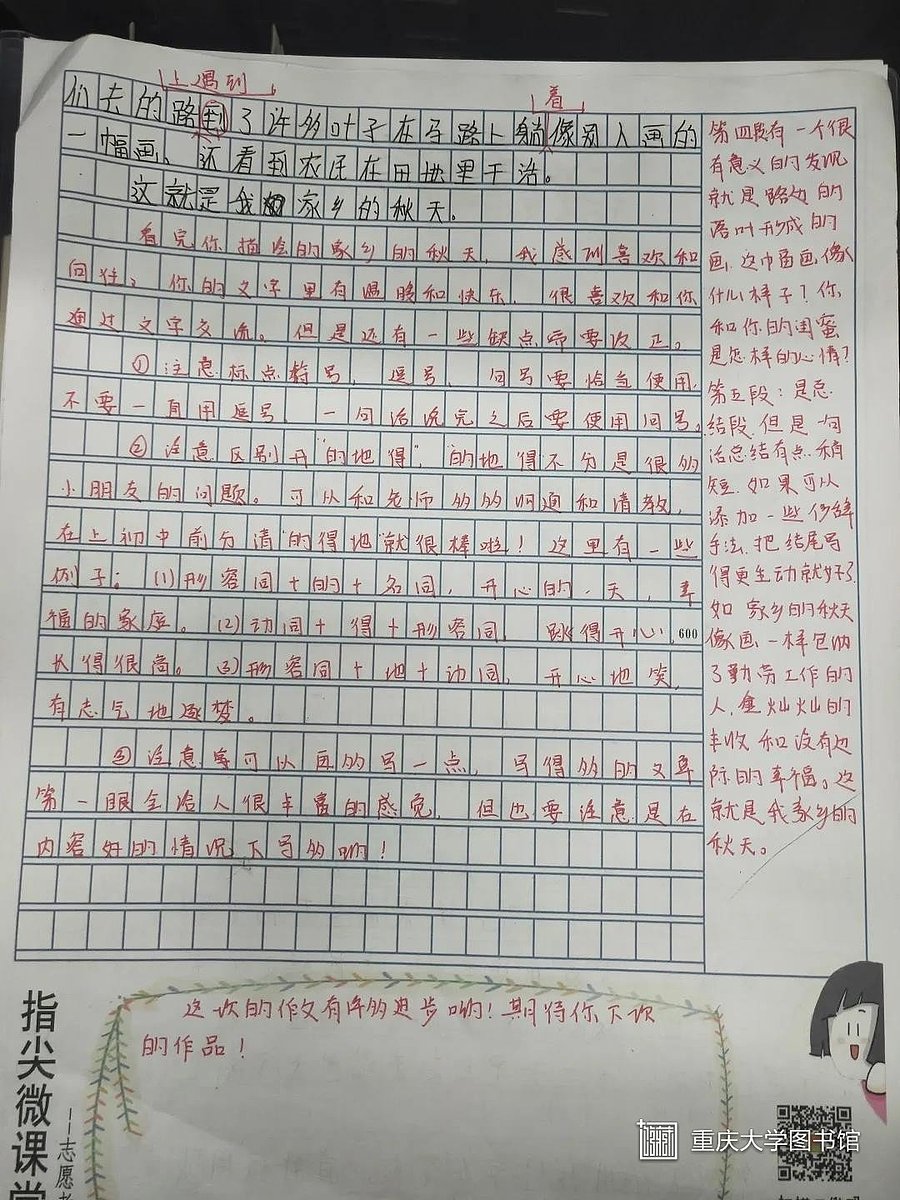 上遇到
着
们去的路到了许多叶子在马路上躺像别人画的
一幅画、还看到农民在田地里干活。
这就是我家乡的秋天。
看完你描绘的家乡的秋天，我感到喜欢和
向往，你的文字里有温暖和快乐，很喜欢和你
通过文字交流。但是还有一些缺点需要改正。
①注意标点符号，逗号、句号要恰当使用，
不要一直用逗号，一句话说完之后要使用句号。
②注意区别开“的地得”，“的地得”不分是很多
小朋友的问题。可以和老师多多沟通和请教，
在上初中前分清“的得地”就很棒啦！这里有一些
例子：(1)形容词+的+名词，开心的一天，幸
福的家庭。(2)动词+得+形容词，跳得开心，
600
长得很高。(3)形容词+地+动词，开心地笑，
有志气地逐梦。
③注意字可以再多写一点，写得多的文章
第一眼会给人很丰富的感觉，但也要注意是在
内容好的情况下写多哟！
第四段有一个很
有意义的发现
就是路边的
落叶形成的
画，这幅画像
什么样子？你
和你的闺蜜
是怎样的心情？
第五段：是总
结段，但是一句
话总结有点稍
短，如果可以
添加一些修辞
手法，把结尾写
得更生动就好了
如 家乡的秋天
像画一样包纳
了勤劳工作的
人，金灿灿的
丰收和没有边
际的幸福。这
就是我家乡的
秋天。
这次的作文有许多进步哟！期待你下次
的作品！
指尖微课堂
——志愿者
重庆大学图书馆